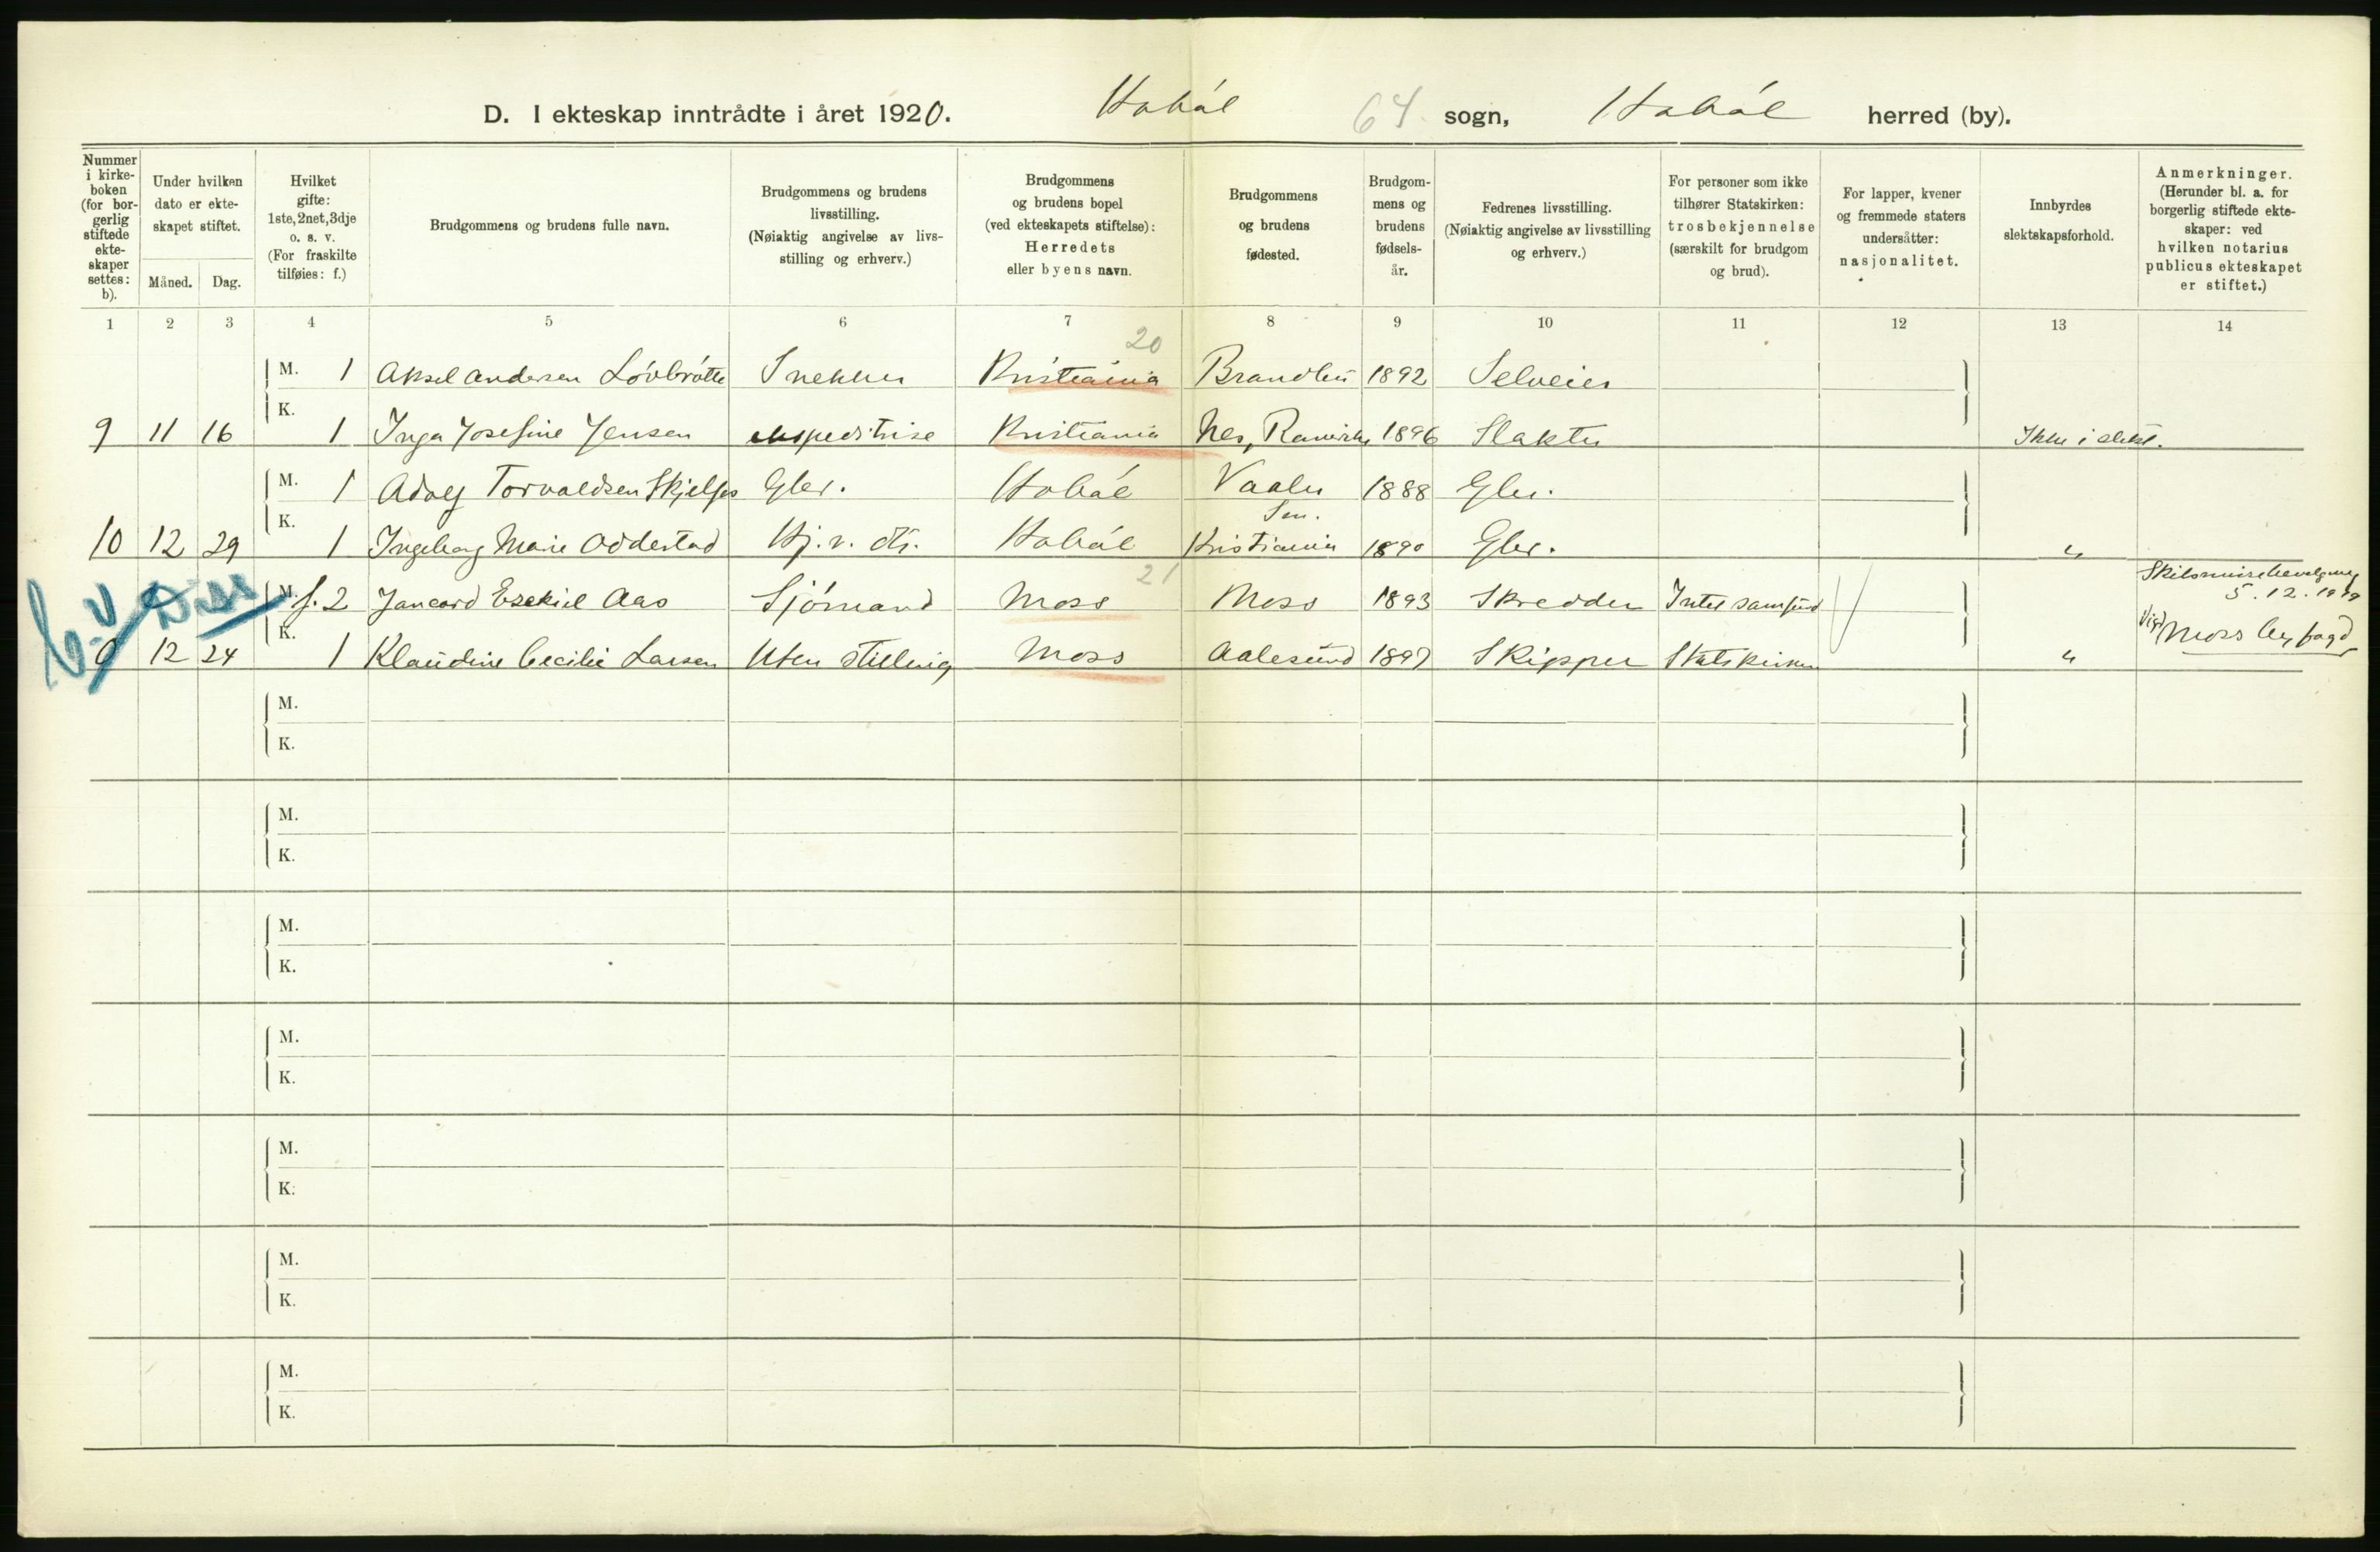 D. I ekteskap inntrådte i året 1920. Hobøl 64 sogn, Hobøl herred (by).
Nummer i kirkeboken (for borgerlig stiftede ekteskaper settes: b).
Under hvilken dato er ekteskapet stiftet.
Måned. Dag.
Hvilket gifte: 1ste, 2net, 3dje o. s. v. (For fraskilte tilføies: f.)
Brudgommens og brudens fulle navn.
Brudgommens og brudens livsstilling. (Nøiaktig angivelse av livsstilling og erhverv.)
Brudgommens og brudens bopel (ved ekteskapets stiftelse): Herredets eller byens navn.
Brudgommens og brudens fødested.
Brudgommens og brudens fødselsår.
Fedrenes livsstilling. (Nøiaktig angivelse av livsstilling og erhverv.)
For personer som ikke tilhører Statskirken: trosbekjennelse (særskilt for brudgom og brud).
For lapper, kvener og fremmede staters undersåtter: nasjonalitet.
Innbyrdes slektskapsforhold.
Anmerkninger. (Herunder bl. a. for borgerlig stiftede ekteskaper: ved hvilken notarius publicus ekteskapet er stiftet.)
1 2 3 4 5 6 7 8 9 10 11 12 13 14
20
M. 1 Aksel Andersen Lövbråtte Snekker Kristiania Brandbu 1892 Selveier
K.
9 11 16 1 Inga Josefine Jensen ekspeditrise Kristiania Nes, 1896 Slakter Ikke i slekt.
M. 1 Adolf Torvaldsen Skjelfos Gbr. Hobøl Vaaler 1888 Gbr.
Sm.
K.
10 12 29 1 Ingeborg Marie Oddestad Hj.v. dtr. Hobøl Kristiania 1890 Gbr. "
21
C. V. Diss
M. f. 2 Jancard Esekiel Aas Sjømand Moss Moss 1893 Skredder Intet samfund Skilsmissebevilgning
5.12.1919
K.
12 24 1 Klaudine Cecilie Larsen Uten stilling Moss Aalesund 1897 Skipper Statskirken " Vigd Moss byfogd
M.
K.
M.
K.
M.
K.
M.
K.
M.
K.
M.
K.
M.
K.